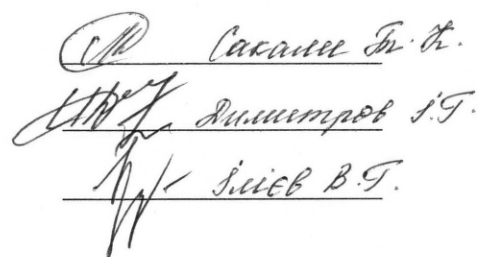 Сакали Т. К.
Димитров І.Г.
Ілієв В.Г.